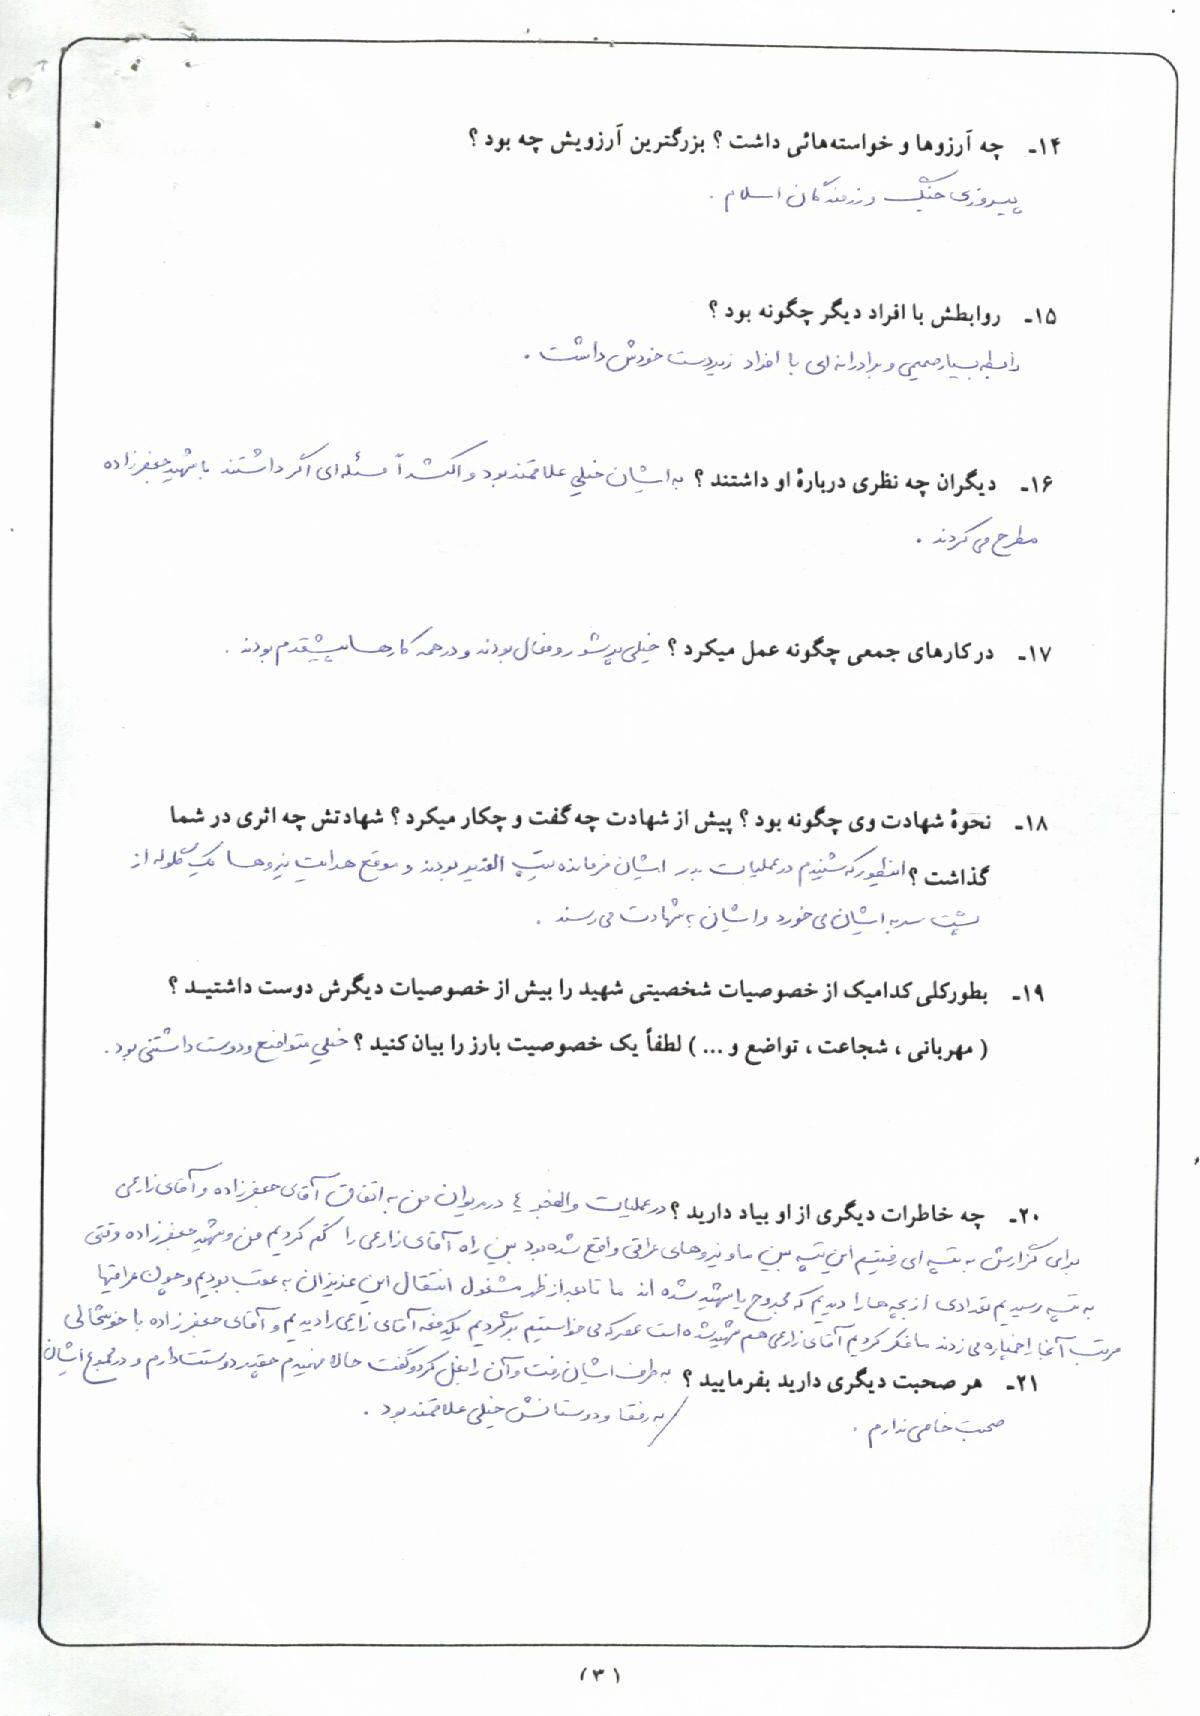 ۱۴ـ چه آرزوها و خواسته‌هائی داشت ؟ بزرگترین آرزویش چه بود ؟
پیروزی جنگ و رزمندگان اسلام .
۱۵ـ روابطش با افراد دیگر چگونه بود ؟
رابطه بسیار صمیمی و برادرانه ای با افراد زیردست خودش داشت .
۱۶ـ دیگران چه نظری دربارهٔ او داشتند ؟ به ایشان خیلی علاقمند بود و اکثراً مسئله ای اگر داشتند با شهید جعفرزاده
مطرح می کردند .
۱۷ـ در کارهای جمعی چگونه عمل میکرد ؟ خیلی پرشور و فعال بودند و در همه کارها پیشقدم بودند .
۱۸ـ نحوهٔ شهادت وی چگونه بود ؟ پیش از شهادت چه گفت و چکار میکرد ؟ شهادتش چه اثری در شما
گذاشت ؟ اینطور که شنیدم در عملیات بدر ایشان فرمانده تیپ الغدیر بودند و موقع هدایت نیروها یک گلوله از
پشت سر به ایشان می خورد و ایشان به شهادت می رسند .
۱۹ـ بطورکلی کدامیک از خصوصیات شخصیتی شهید را بیش از خصوصیات دیگرش دوست داشتید ؟
( مهربانی ، شجاعت ، تواضع و ... ) لطفاً یک خصوصیت بارز را بیان کنید ؟ خیلی متواضع و دوست داشتنی بود .
۲۰ـ چه خاطرات دیگری از او بیاد دارید ؟ در عملیات والفجر ٤ در مریوان من به اتفاق آقای جعفرزاده و آقای زارعی
برای گزارش به تپه ای رفتیم این تپه بین ما و نیروهای عراقی واقع شده بود بین راه آقای زارعی را گم کردیم من و شهید جعفرزاده وقتی
به تپه رسیدیم تعدادی از بچه ها را دیدیم که مجروح یا شهید شده اند ما تا بعد از ظهر مشغول انتقال این عزیزان به عقب بودیم و چون عراقیها
مرتب آنجا را خمپاره می زدند ما فکر کردیم آقای زارعی هم شهید شده است عصر که می خواستیم برگردیم یکدفعه آقای زارعی را دیدیم و آقای جعفرزاده با خوشحالی
به طرف ایشان رفت و آن را بغل کرد و گفت حالا فهمیدم چقدر دوستت دارم و در مجموع ایشان
به رفقا و دوستانش خیلی علاقمند بود .
۲۱ـ هر صحبت دیگری دارید بفرمایید ؟
صحبت خاصی ندارم .
(۳)